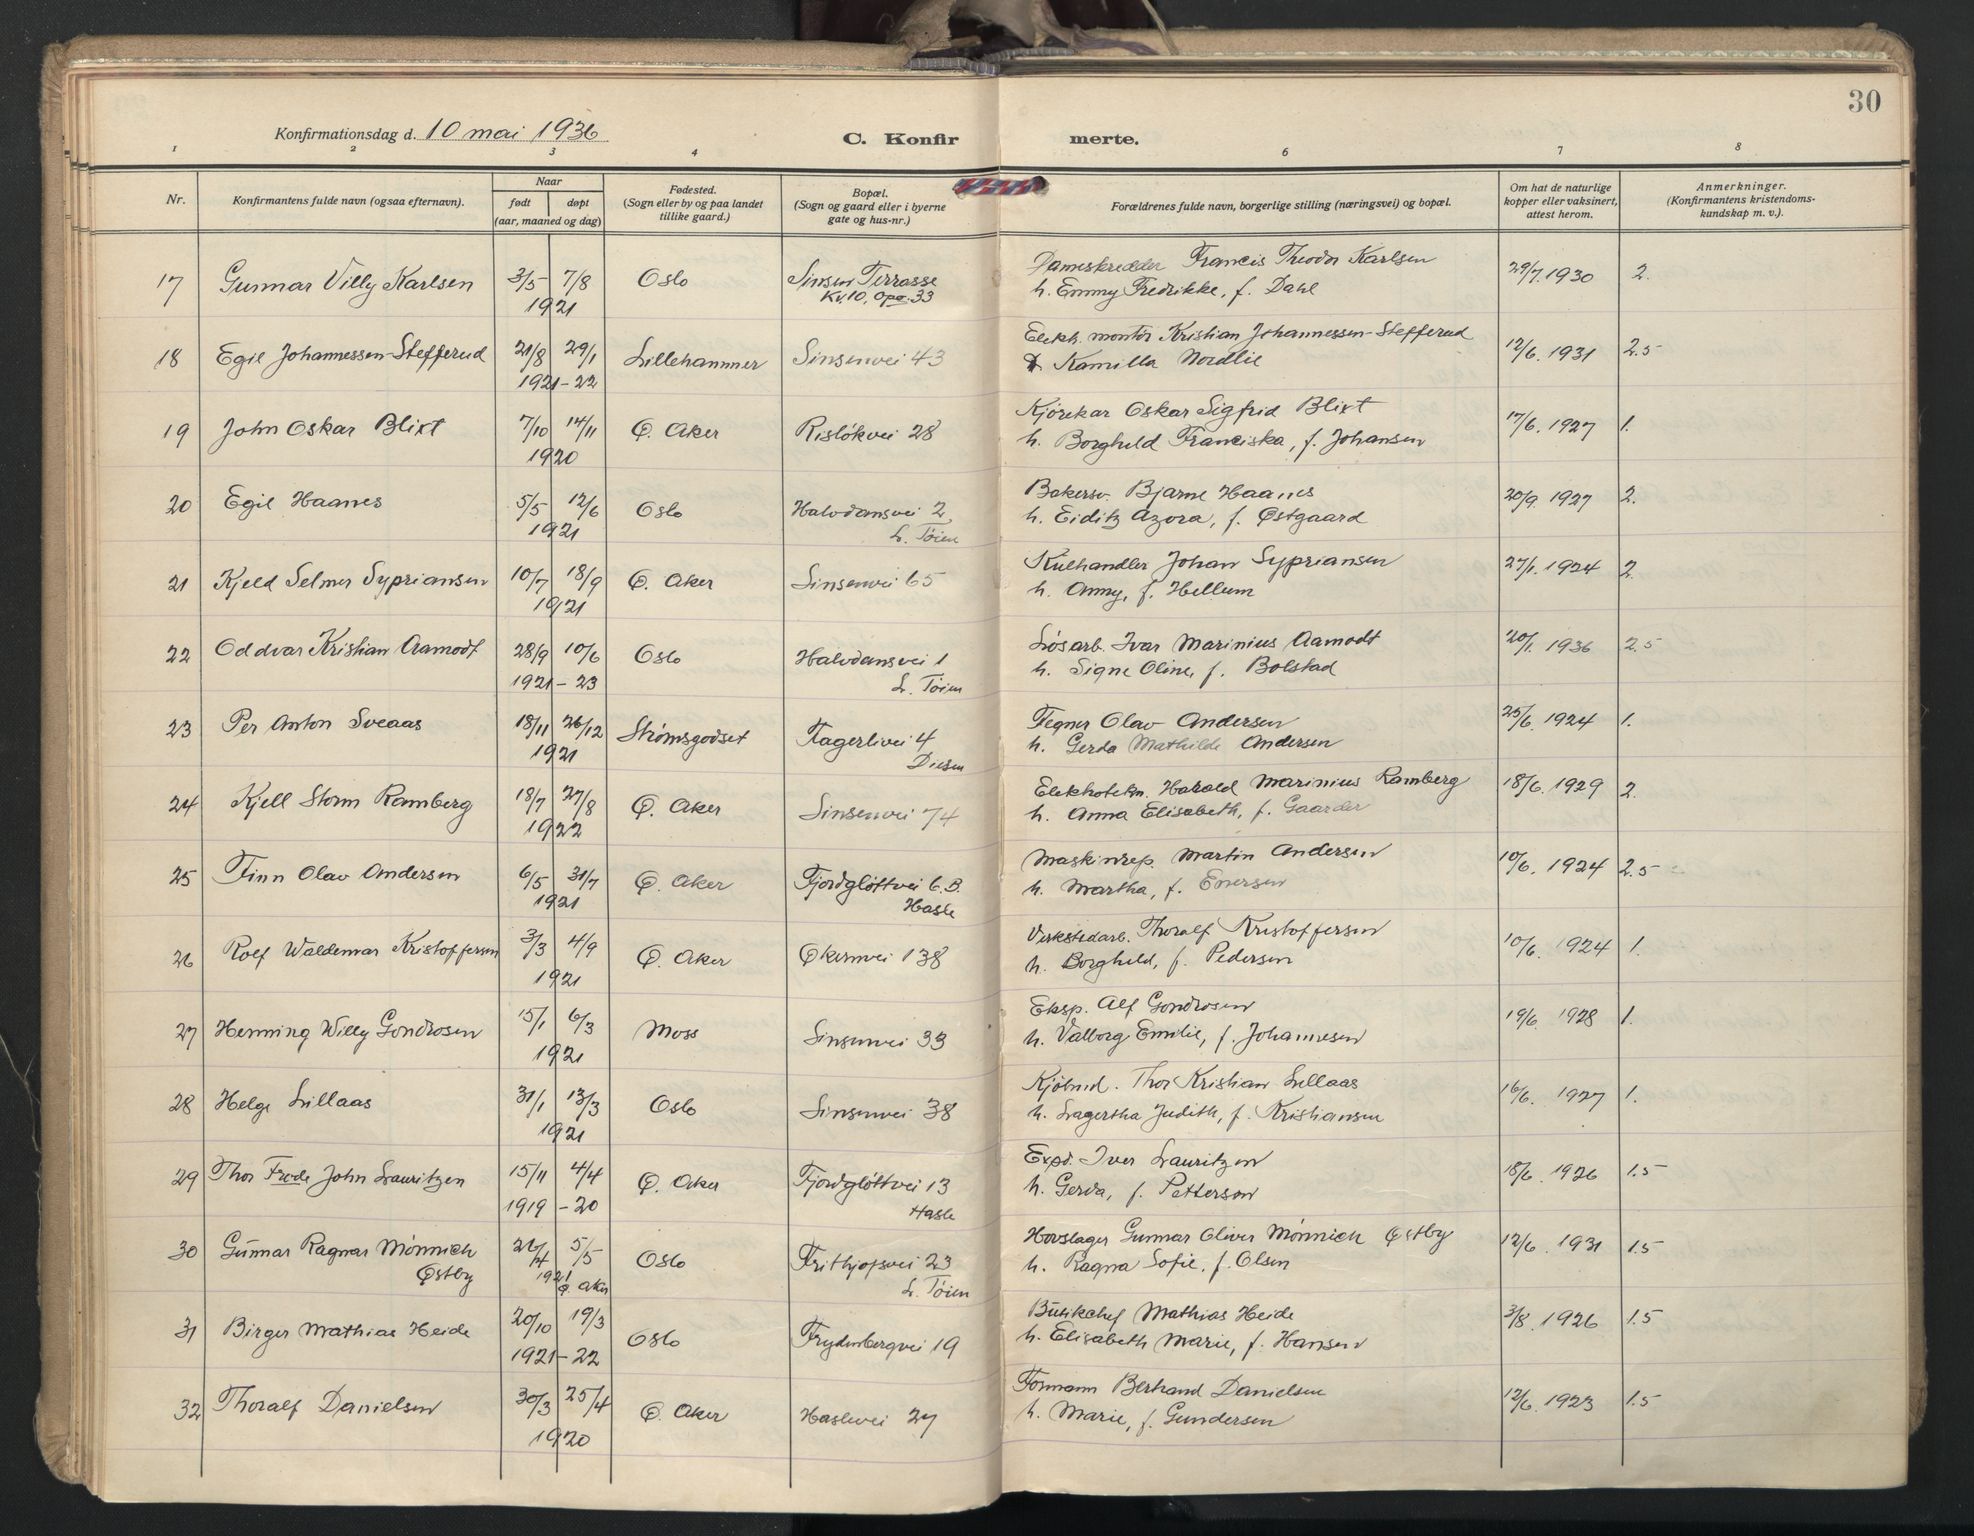 30
Konfirmationsdag d. 10 mai 1936
C. Konfir merte.
1 2 3 4 6 7 8
Nr.
Konfirmantens fulde navn (ogsaa efternavn).
Naar
født døpt
(aar, maaned og dag)
Fødested.
(Sogn eller by og paa landet
tillike gaard.)
Bopæl.
(Sogn og gaard eller i byerne
gate og hus-nr.)
Forældrenes fulde navn, borgerlige stilling (næringsvei) og bopæl.
Om hat de naturlige
kopper eller vaksinert,
attest herom.
Anmerkninger.
(Konfirmantens kristendoms-
kundskap m. v.).
17 Gunnar Villy Karlsen 3/5 7/8 Oslo Sinsen Terrasse Dameskredder Francis Theodor Karlsen 29/7. 1930 2.
1921 Kv. 10, Opg. 33 h. Emmy Fredrikke, f. Dahl
18 Egil Johannessen-Stefferud 21/8 29/1 Lillehammer Sinsenvei 43 Elekh. montör Kristian Johannessen-Stefferud 12/6. 1931 2.5
1921-22 Kamilla Nordlie
19 John Oskar Blixt 7/10 14/11 Ø. Aker Risløkvei 28 Kjørekar Oskar Sigfrid Blixt 17/6. 1927 1.
1920 h. Borghild Franciska, f. Johansen
20 Egil Haanes 5/5 12/6 Oslo Halvdansvei 2 Bakersv. Bjarne Haanes 20/9 1927 2.
1921 L. Tøien h. Eiditz Azora, f. Østgaard
21 Kjeld Selmer Sypriansen 10/7 18/9 Ø. Aker Sinsenvei 65 Kulhandler Johan Sypriansen 27/1. 1924 2.
1921 h. Anny, f. Hellum
22 Oddvar Kristian Aamodt 28/9 10/6 Oslo Halvdansvei 1 Løsarb. Ivar Marinius Aamodt 20/1. 1936 2.5
1921-23 L. Tøien h. Signe Oline, f. Bolstad
23 Per Anton Sveaas 18/11 26/12 Strømsgodset Fagerlivei 4 Tegner Olav Andersen 25/6. 1924 1.
1921 Disen h. Gerda Mathilde Andersen
24 Kjell Storm Ramberg 18/7 27/8 Ø. Aker Sinsenvei 74 Elekhotekn. Harald Marinius Ramberg 18/6. 1929 2.
1922 h. Anna Elisabeth, f. Gaarder
25 Finn Olav Andersen 6/5 31/7 Ø. Aker Fjordgløttvei 6. B. Maskinrep. Martin Andersen 10/6. 1924 2.5
1921 Hasle h. Martha, f. Enersen
26 Rolf Waldemar Kristoffersen 3/3 4/9 Ø. Aker Økernvei 138 Verkstedarb. Thoralf Kristoffersen 10/6. 1924 1.
1921 h. Borghild, f. Pedersen
27 Henning Willy Gondrosen 15/1 6/3 Moss Sinsenvei 33 Eksp. Alf Gondrosen 19/6. 1928 1.
1921 h. Valborg Emilie, f. Johannesen
28 Helge Lillaas 31/1 13/3 Oslo Sinsenvei 38 Kjøbmd. Thor Kristian Lillaas 16/6. 1927 1.
1921 h. Lagertha Judith, f. Kristiansen
29 Thor Frode John Lauritzen 15/11 4/4 Ø. Aker Fjordgløttvei 13 Expd. Iver Lauritzen 18/6. 1926 1.5
1919-20 Hasle h. Gerda, f. Petterson
30 Gunnar Ragnar Mönnich 26/4 5/5 Oslo Frithjofsvei 23 Hovslager Gunnar Oliver Mönnich Østby 12/6. 1931 1.5
Østby 1921 Ø. Aker L. Tøien h. Ragna Sofie, f. Olsen
31 Birger Mathias Heide 20/10 19/3 Oslo Frydenbergvei 19 Butikchef Mathias Heide 3/8. 1926 1.5
1921-22 h. Elisabeth Marie, f. Hansen
32 Thoralf Danielsen 30/3 25/4 Ø. Aker Haslevei 27 Formann Bertrand Danielsen 12/6. 1923 1.5
1920 h. Marie, f. Gundersen